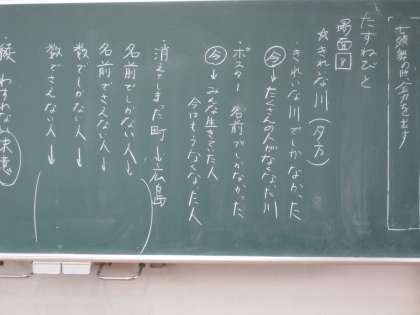 たずねびと
場面⑧
☆きれいな川(夕方)
きれいな川でしかなかった
今→たくさんの人がなくなった川
ポスター 名前でしかなかった
今→みんな生きていた人
今はもうなくなった人
消えてしまった町→広島
名前でしかない人↓
名前でさえない人↓
数でしかない人↓
数でさえない人↓
わすれない決意